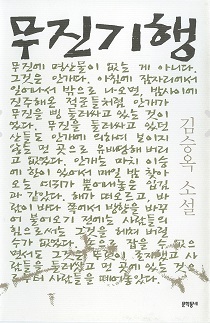 무진기행
무진에 명산물이 없는 게 아니다.
그것은 안개다. 아침에 잠자리에서
일어나서 밖으로 나오면, 밤사이에
진주해온 적군들처럼 안개가
무진을 삥 둘러싸고 있는 것이
었다. 무진을 둘러싸고 있던
산들도 안개에 의하여 보이지
않는 먼 곳으로 유배당해버리
고 없었다. 안개는 마치 이승
에 한이 있어서 매일 밤 찾아
오는 여귀가 뿜어내놓은 입김
과 같았다. 해가 떠오르고, 바
람이 바다 쪽에서 방향을 바꾸
어 불어오기 전에는 사람들의
힘으로써는 그것을 헤쳐버릴
수가 없었다. 손으로 잡을 수 없
으면서도 그것은 뚜렷이 존재했고 사
람들을 둘러쌌고 먼 곳에 있는 것으
로부터 사람들을 떼어놓았다.
김승옥 소설
문학동네